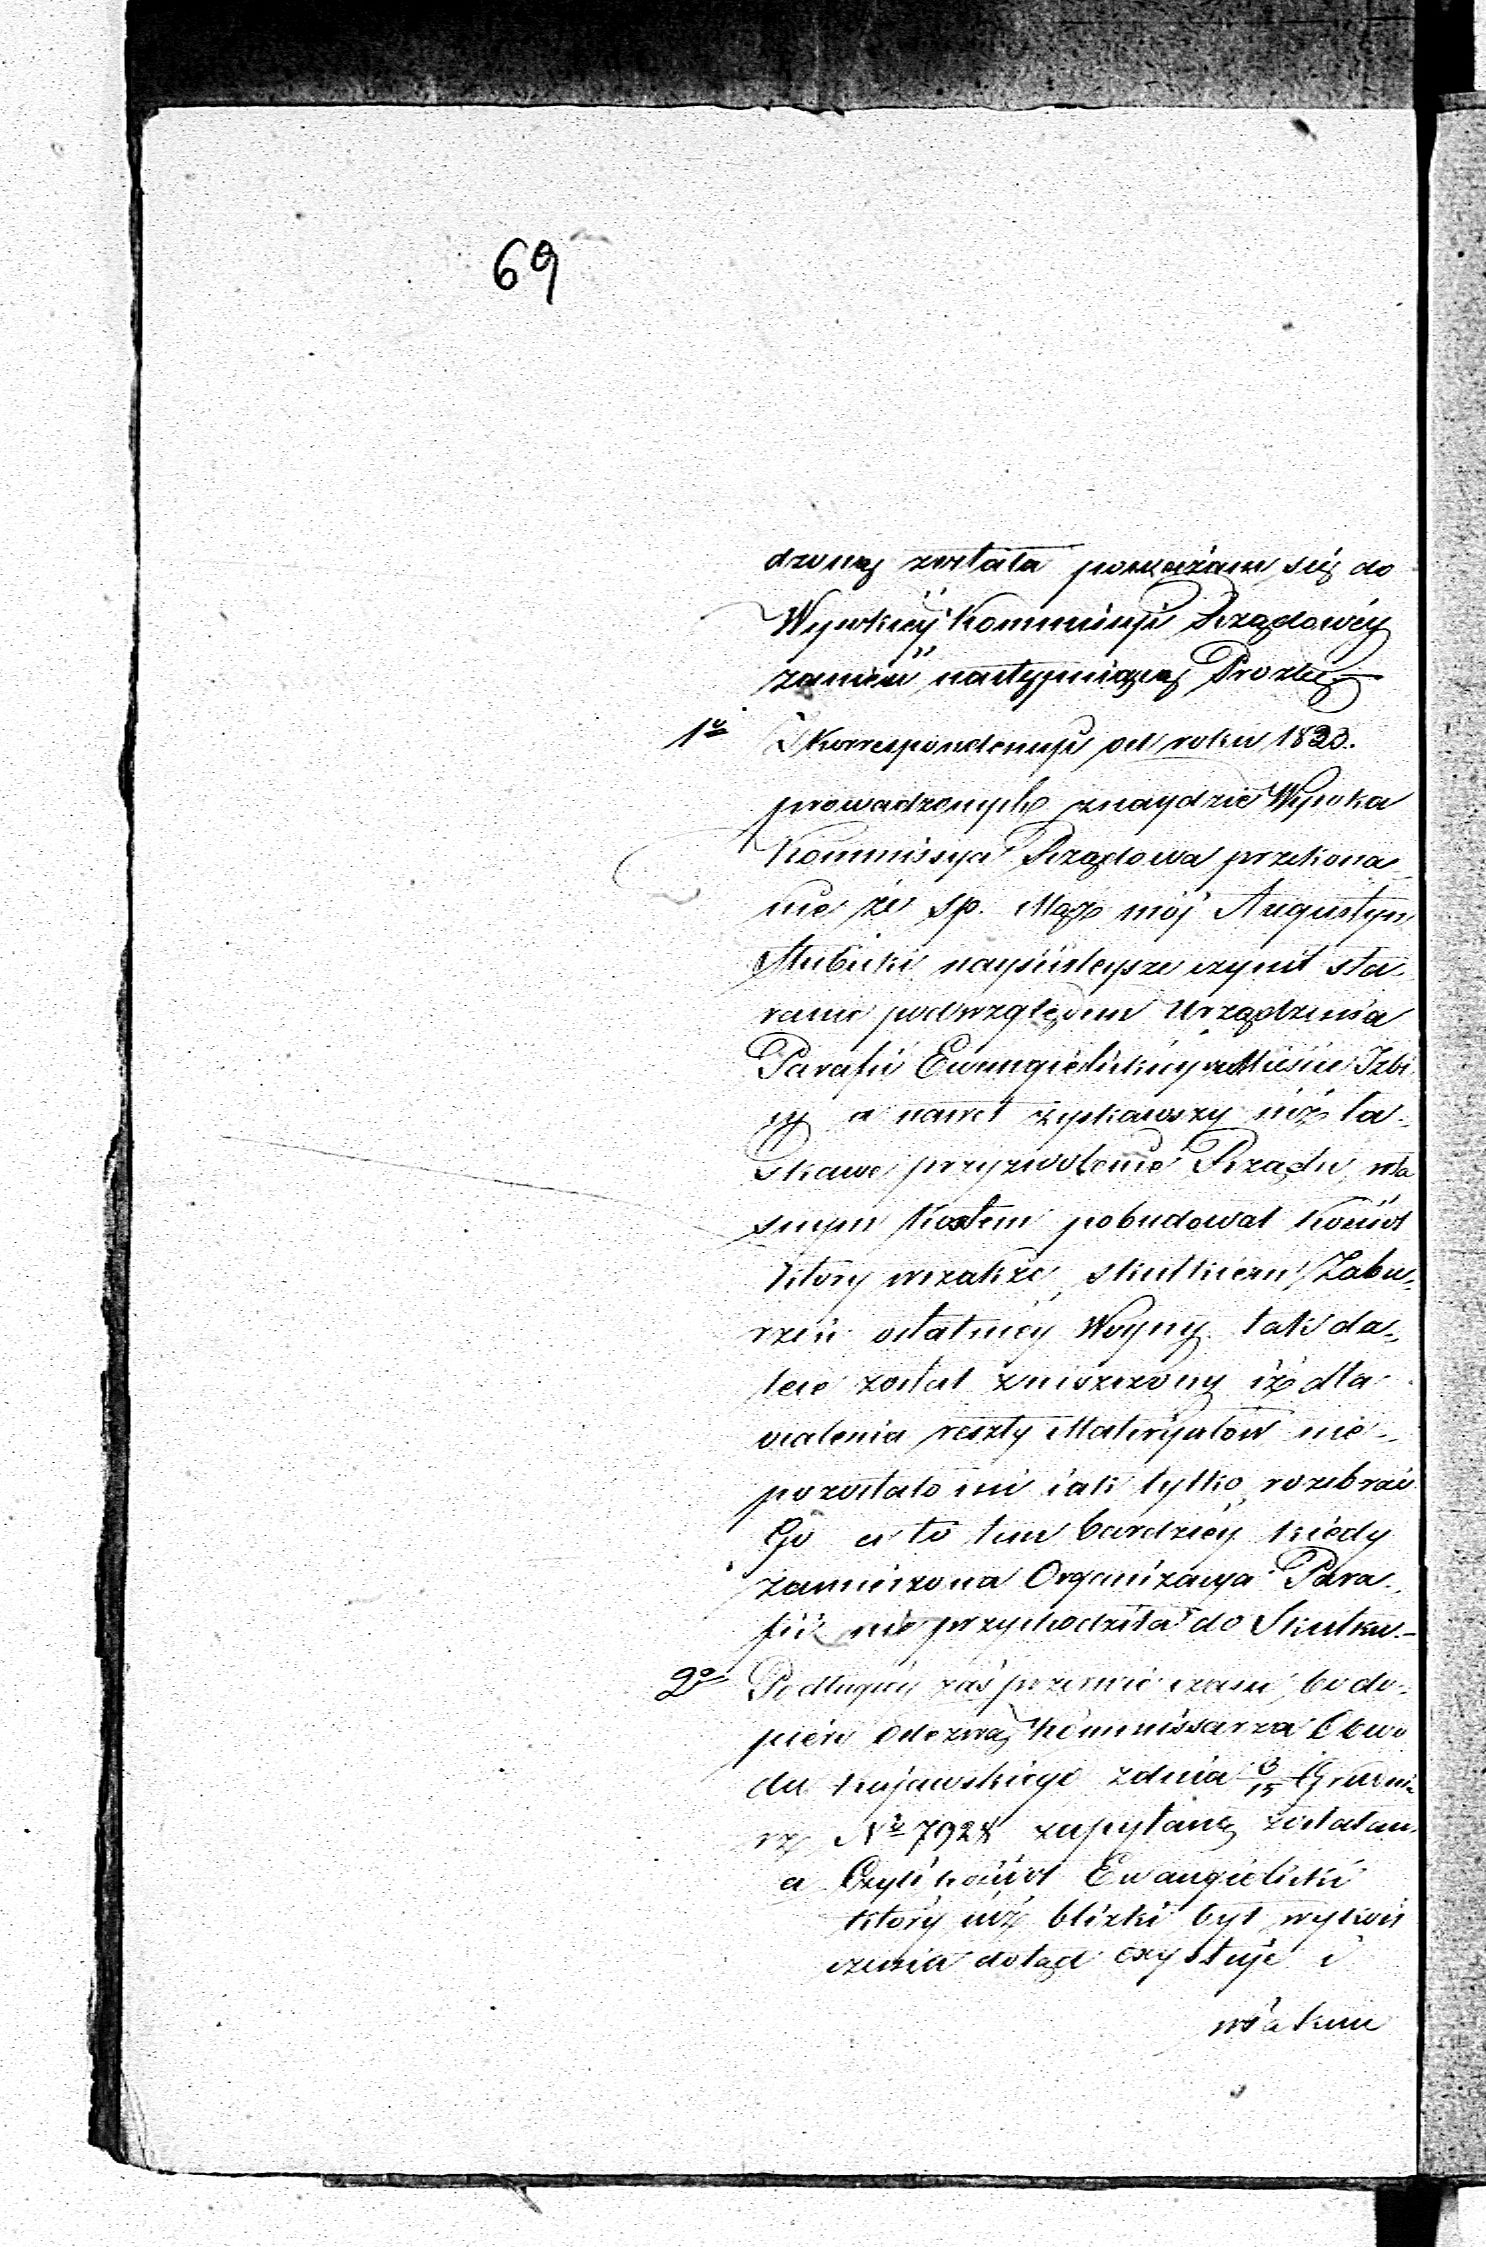 69
dzoną została poważam się do
Wysokiéj Kommissyi Rządowéy
zanieść następuiącą Prozbę
1o Z Korrespondencyi od roku 1823.
prowadzonych znaydzie Wysoka
Kommissya Rządowa przekona-
nie że sp. Mąż mój Augustyn
Słubicki nayściśleysze czynił sta-
ranie podwzględem Urządzenia
Parafii Ewangielickiey w Mieście Izbi
cy a nawet zyskawszy iuż ła-
skawe przyzwolenie Rządu, wła
snym Kosztem pobudował Kościół
który wszakże, skutkiem Zabu-
rzeń ostatniéy Woyny tak da-
lece został zniszczony iż dla
ocalenia reszty Materyałów nie-
pozostało mi iak tylko rozebrać
Go a to tem bardziéy kiedy
zamierzona Organizacya Para-
fii nie przychodziła do Skutku.-
2o Podługiéy zaś przerwie czasu, bo do-
piero odezwą Kommissarza Obwo
du Kujawskiego zdnia 3/15 Grudnia
rz No 7928 zapytaną zostałam
a Czyli kościół Ewangielicki
który iuż blizki był wykoń
czenia dotąd exystuje i
w iakim